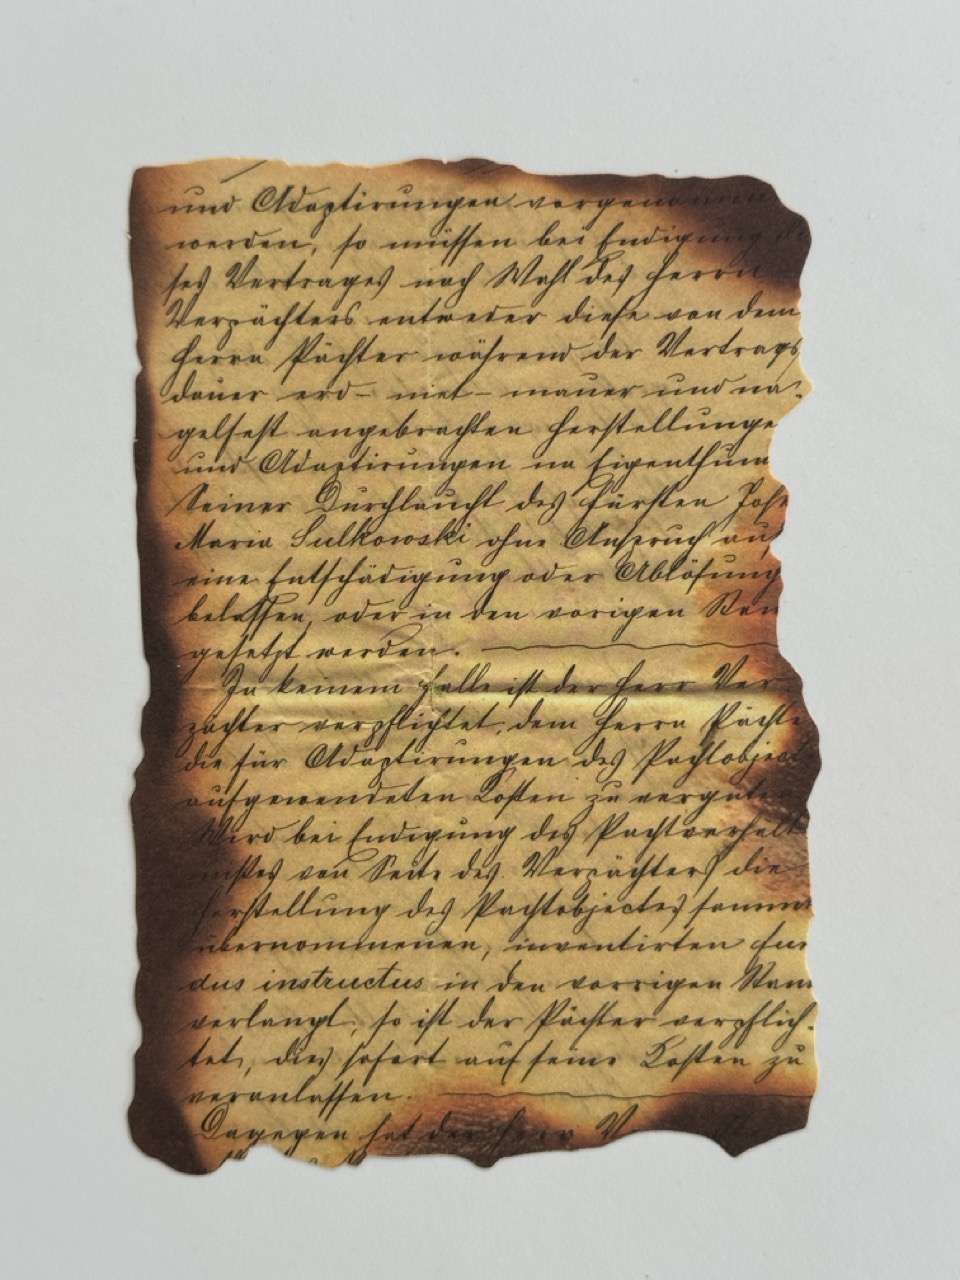 und Adaptirungen vorgenommen
werden, so müssen bei Endigung die
ses Vertrages nach Wahl des Herrn
Verpächters entweder diese von dem
Herrn Pächter während der Vertrags
dauer erd- niet- mauer und na-
gelfest angebrachten Herstellunge
und Adaptirungen im Eigenthum
Seiner Durchlaucht des Fürsten Jose
Maria Sulkowski ohne Anspruch auf
eine Entschädigung oder Ablösung
belassen, oder in den vorigen Stan
gesetzt werden.
In keinem Falle ist der Herr Ver-
pächter verpflichtet, dem Herrn Pächte
die für Adaptirungen des Pachtobject
aufgewendeten Kosten zu vergüten
Wird bei Endigung des Pachtverhält
nisses von Seite des Verpächters die
Herstellung des Pachtobjectes sammt
übernommenen, inventirten fun
dus instructus in den vorrigen Stan
verlangt, so ist der Pächter verpflich-
tet, dies sofort auf seine Kosten zu
veranlassen.
Dagegen hat der Herr